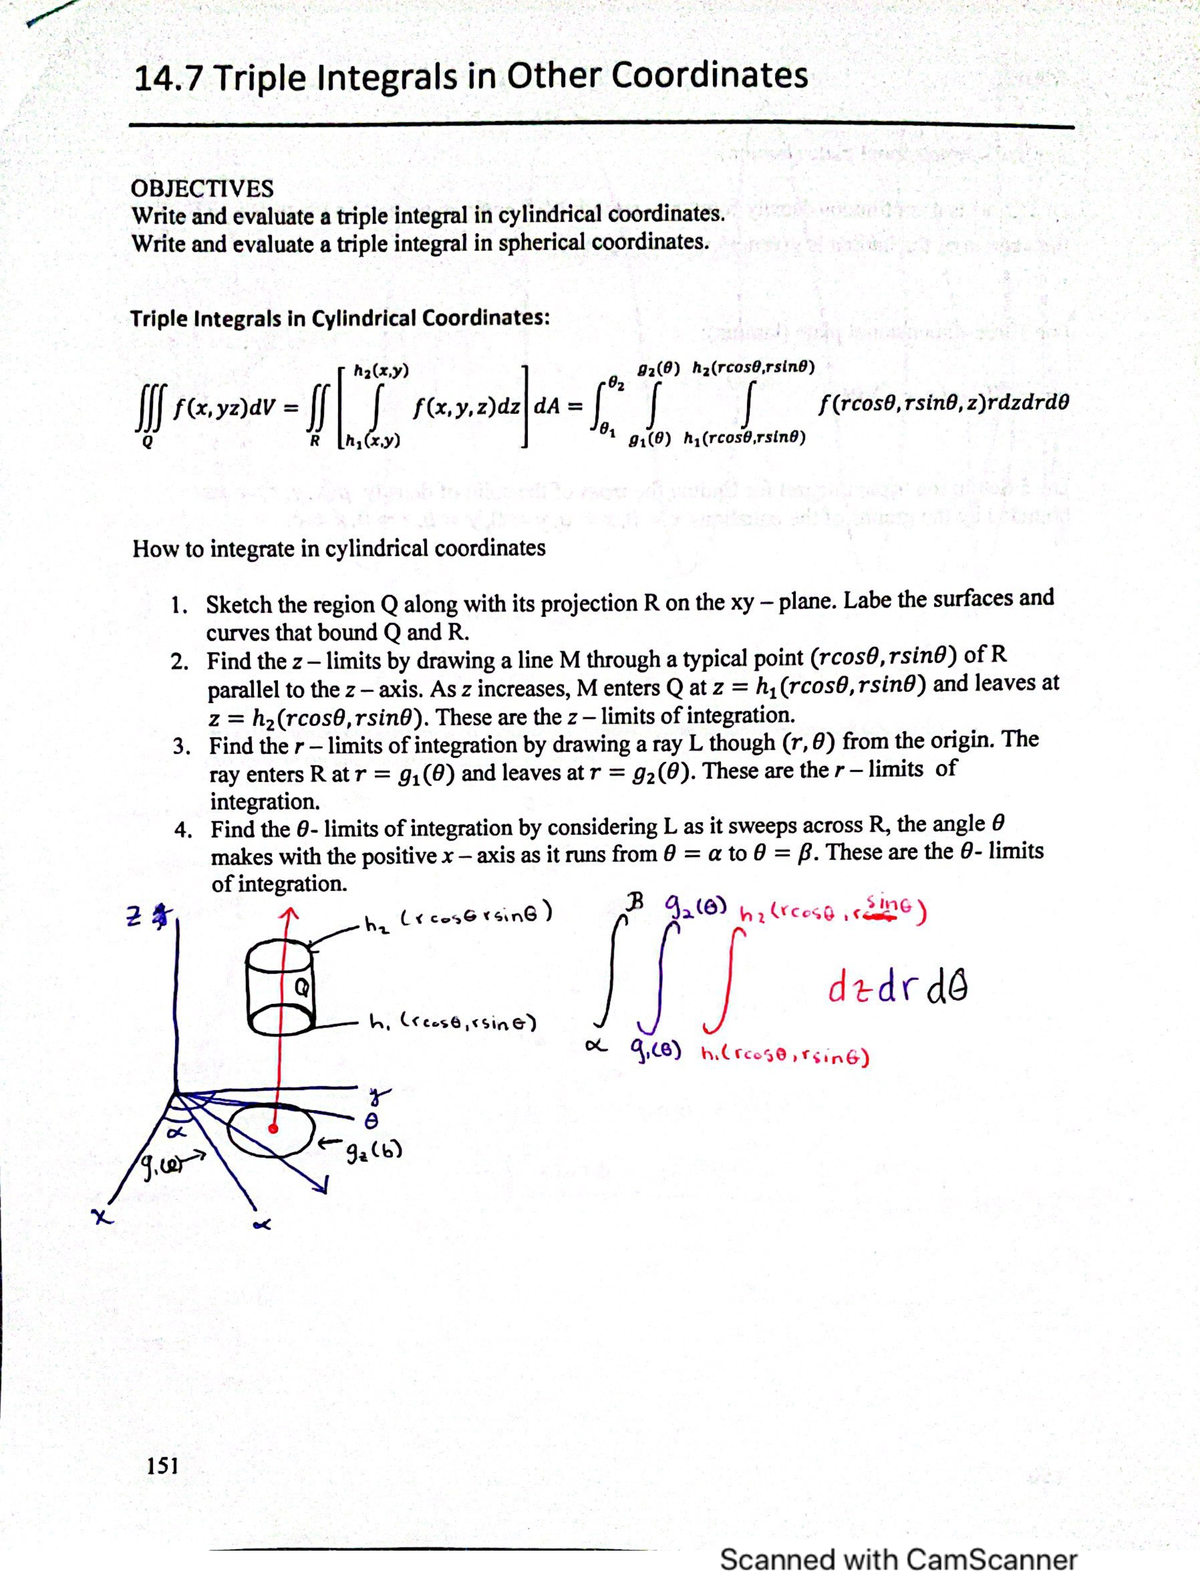 14.7 Triple Integrals in Other Coordinates
OBJECTIVES
Write and evaluate a triple integral in cylindrical coordinates.
Write and evaluate a triple integral in spherical coordinates.
Triple Integrals in Cylindrical Coordinates:
∭_Q f(x,yz)dV = ∬_R [ ∫_{h₁(x,y)}^{h₂(x,y)} f(x,y,z)dz ] dA = ∫_{θ₁}^{θ₂} ∫_{g₁(θ)}^{g₂(θ)} ∫_{h₁(rcosθ,rsinθ)}^{h₂(rcosθ,rsinθ)} f(rcosθ,rsinθ,z)rdzdrdθ
How to integrate in cylindrical coordinates
1. Sketch the region Q along with its projection R on the xy – plane. Labe the surfaces and
curves that bound Q and R.
2. Find the z – limits by drawing a line M through a typical point (rcosθ,rsinθ) of R
parallel to the z – axis. As z increases, M enters Q at z = h₁(rcosθ,rsinθ) and leaves at
z = h₂(rcosθ,rsinθ). These are the z – limits of integration.
3. Find the r – limits of integration by drawing a ray L though (r,θ) from the origin. The
ray enters R at r = g₁(θ) and leaves at r = g₂(θ). These are the r – limits of
integration.
4. Find the θ- limits of integration by considering L as it sweeps across R, the angle θ
makes with the positive x – axis as it runs from θ = α to θ = β. These are the θ- limits
of integration.
z
h₂ (rcosθ rsinθ)
Q
h₁ (rcosθ,rsinθ)
y
θ
α
g₁(θ)
g₂(θ)
x
α
∫_α^B ∫_{g₁(θ)}^{g₂(θ)} ∫_{h₁(rcosθ,rsinθ)}^{h₂(rcosθ,rsinθ)} dzdrdθ
151
Scanned with CamScanner